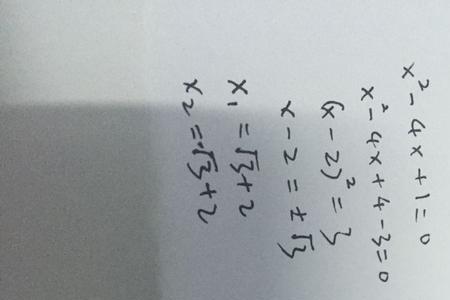 x² - 4x + 1 = 0
x² - 4x + 4 - 3 = 0
(x - 2)² = 3
x - 2 = ±√3
x₁ = √3 + 2
x₂ = -√3 + 2